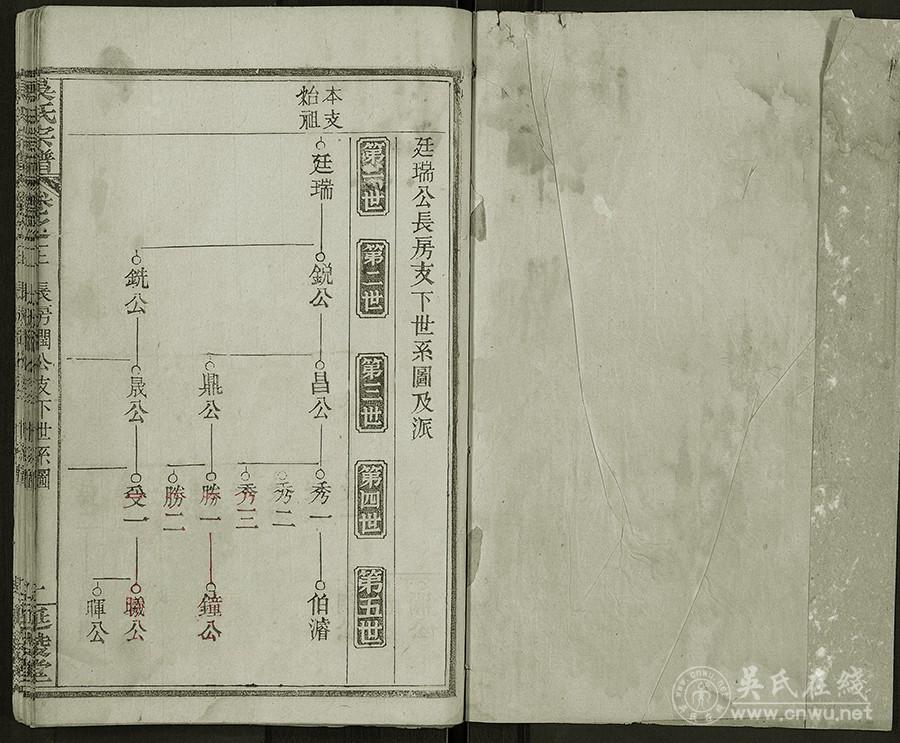 廷瑞公長房支下世系圖及派
第一世
第二世
第三世
第四世
第五世
本支
始祖
廷瑞
銳公
昌公
秀一
伯濬
秀二
秀三
鼎公
勝一
鐘公
勝二
銑公
晟公
受一
曦公
暉公
吳氏宗譜
長房閏公支下世系圖
吳氏在线
www.cnwu.net